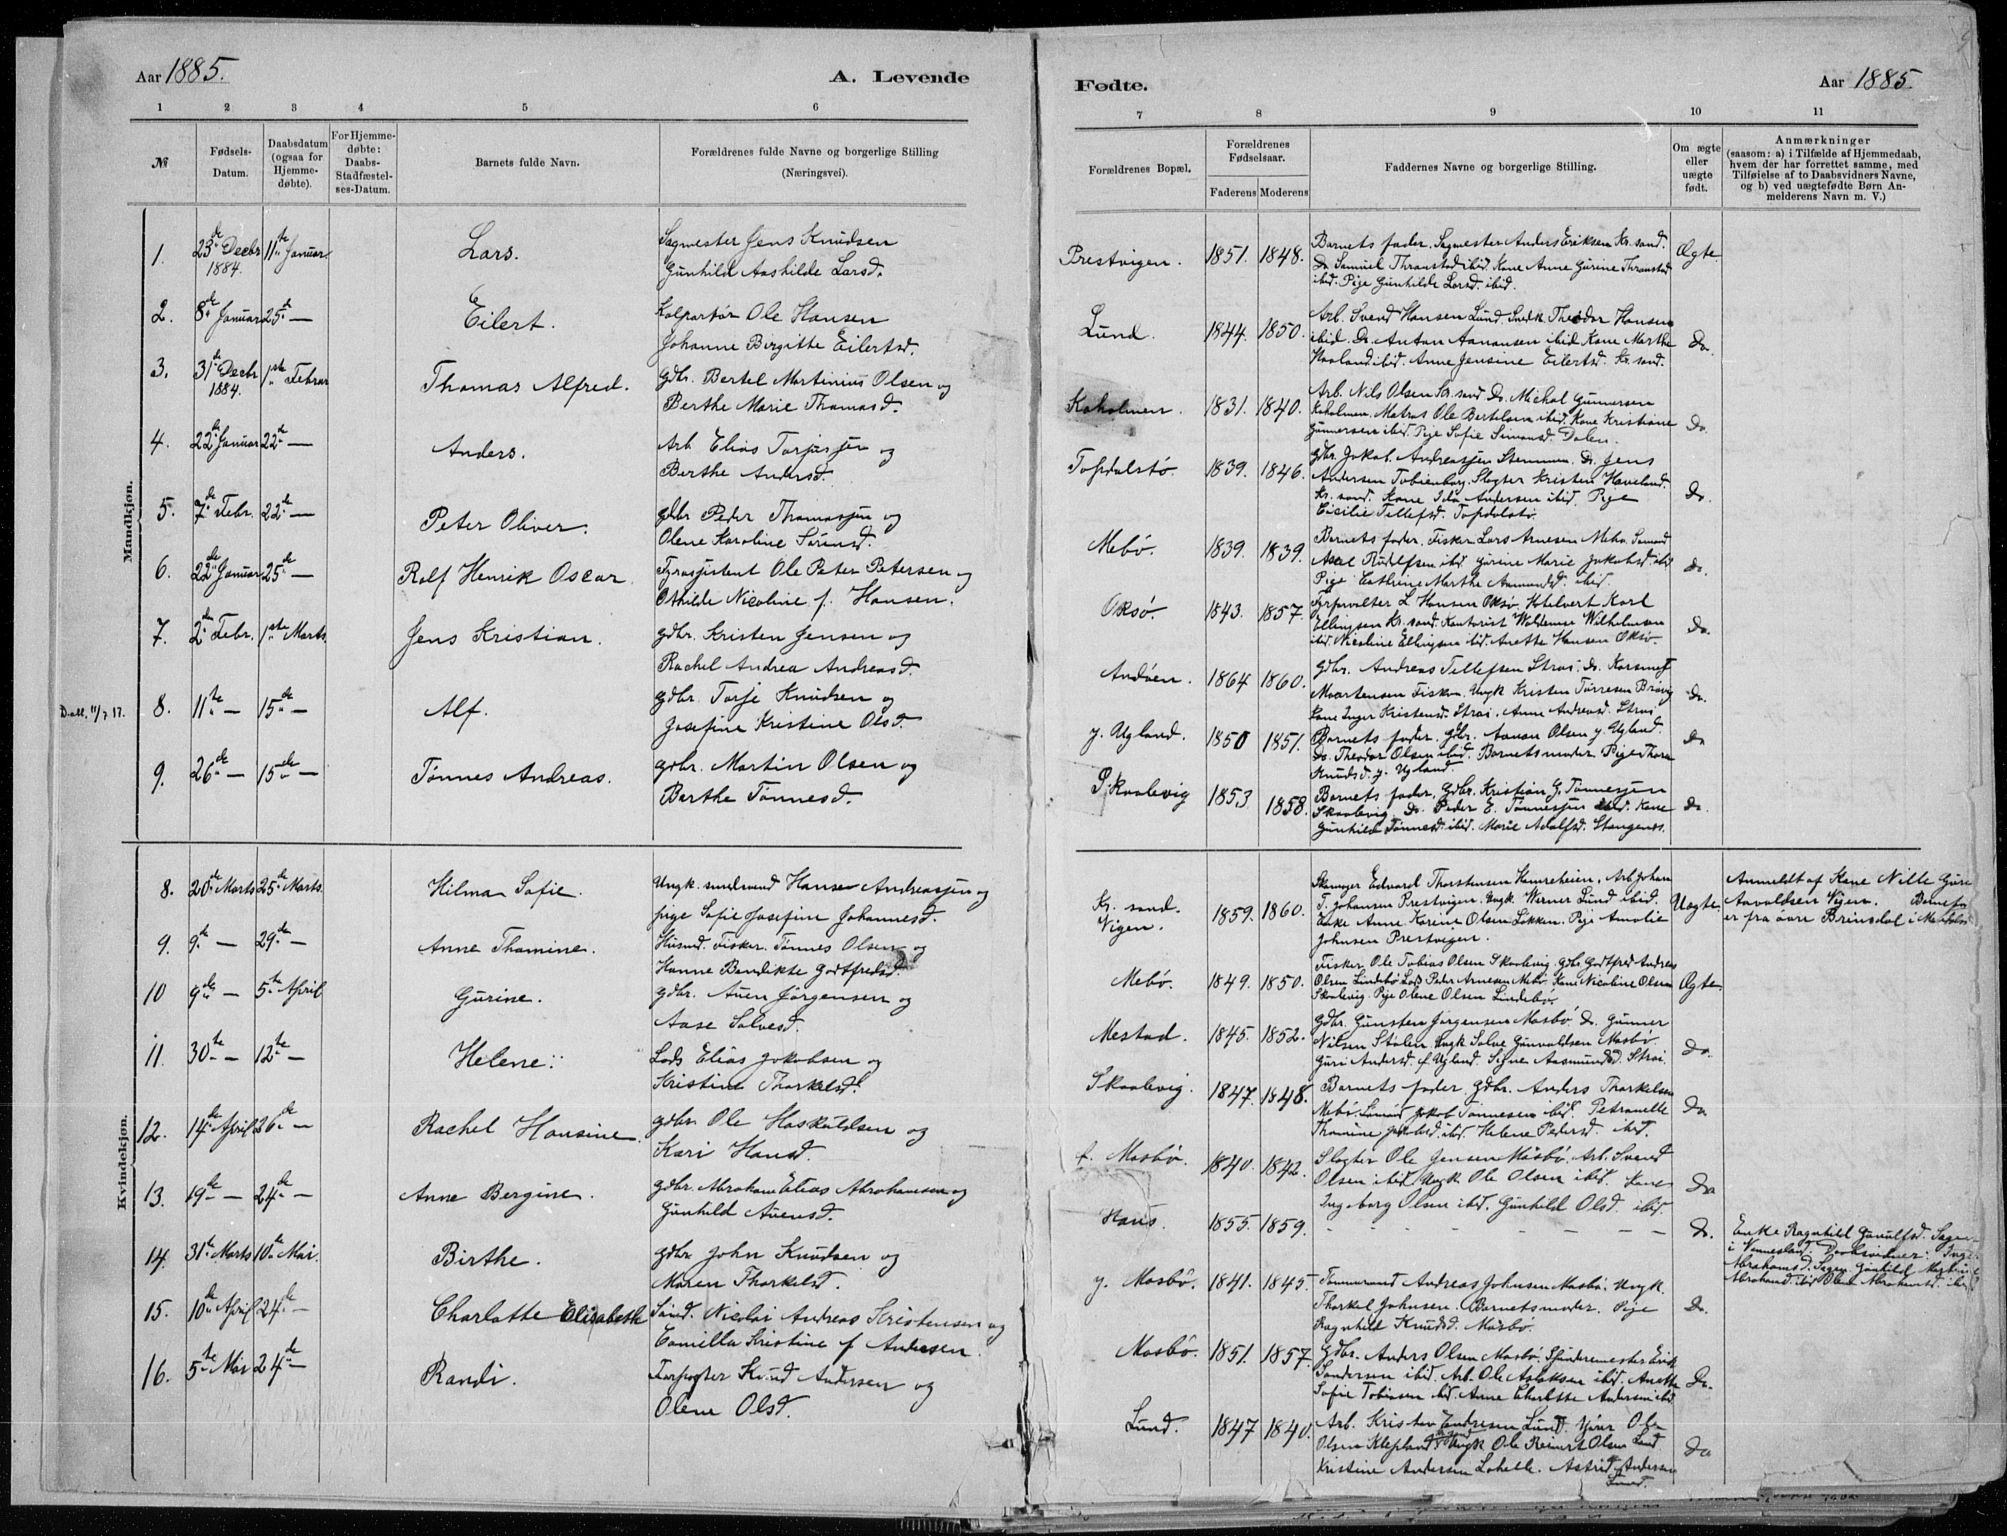 Aar 1885.
A. Levende
1 2 3 4 5 6
№
Fødsels-Datum.
Daabsdatum (ogsaa for Hjemmedøbte).
For Hjemmedøbte: Daabs-Stadfæstelses-Datum.
Barnets fulde Navn.
Forældrenes fulde Navne og borgerlige Stilling (Næringsvei).
Mandkjøn.
1. 23de Decbr 1884. 11te Januar Lars. Sagmester Jens Knudsen
Gunhild Aashilde Larsd.
2. 8de Januar 25de — Eilert. Kolportør Ole Hansen
Johanne Birgitte Eilertsd.
3. 31te Decbr 1884. 1ste Februar Thomas Alfred. gdbr. Bertel Martinius Olsen og
Berthe Marie Thomasd.
4. 22de Januar 22de — Anders. Arb. Elias Torjusjen og
Berthe Andersd.
5. 7de Febr. 22de — Peter Oliver. gdbr Peder Thomasjen og
Olene Karoline Sørensd.
6. 22de Januar 25de — Rolf Henrik Oscar. Fyrasjistent Ole Peter Petersen og
Othilde Nicoline f. Hansen.
7. 2den Febr. 1ste Marts Jens Kristian. gdbr. Kristen Jensen og
Rachel Andrea Andreasd.
8. 11te — 15de — Alf. gdbr. Torje Knudsen og
Josefine Kristine Olsd.
9. 26de — 15de — Tønnes Andreas. gdbr. Martin Olsen og
Barthe Tønnesd.
Kvindekjøn.
8. 20de Marts 25de Marts. Hilma Sofie. Ungk. Hans Andreasjen og
pige Sofie Josefine Johannesd.
9. 9de — 29de — Anne Thomine. Husmd. Fisker Tønnes Olsen og
Hanne Bendikte Godtfredsd.
10 9de — 5te April Gurine. gdbr. Auen Jørgensen og
Aase Salvesd.
11. 30te — 12te — Helene. Lods Elias Jakobsen og
Kristine Thorkelsd.
12. 14de April 26de — Rachel Hansine. gdbr. Ole Haskulsen og
Kari Hansd.
13. 19de — 24de — Anne Bergine. gdbr. Abraham Elias Abrahamsen og
Gunhild Auensd.
14. 31te Marts 10de Mai. Birthe. gdbr John Knudsen og
Maren Thorkelsd.
15. 10de April 24de — Charlotte Elisabeth Nicolai Andreas Kristensen og
Camilla Kristine f Andersen.
16. 5te Mai 24de — Randi. Knud Andersen og
Olene Olsd.
Fødte.
Aar 1885.
7 8 9 10 11
Forældrenes Bopæl.
Forældrenes Fødselsaar.
Faderens Moderens
Faddernes Navne og borgerlige Stilling.
Om ægte eller uægte født.
Anmærkninger
(saasom: a) i Tilfælde af Hjemmedaab, hvem der har forrettet samme, med Tilføielse af to Daabsvidners Navne, og b) ved uægtefødte Børn Anmelderens Navn m. V.)
Prestvigen. 1851. 1848. Barnets fader. Sagmester Anders Eriksen Kr. sand.
Do Samuel Thranstad ibid. Kone Anne Gurine Thranstad
ibid. Pige Gunhilde Larsd. ibid. Ægte.
Lund. 1844. 1850. Arb. Svend Hansen Lund Theodor Hansen
ibid. Do. Anton Aanansen ibid Kone Marthe
Haaland ibid. Anne Jensine Eilertsd. Kr. sand. Do.
Koholmen. 1831. 1840. Arb. Nils Olsen Kr. sand Do. Michal Gunnersen
Koholmen. Matros Ole Bertelsen ibid. Kone Kristiane
Gunnersen ibid. Pige Sofie Simonsd. Dalen. Do.
Topdalstø 1839. 1846. gdbr. Jakob Andreasjen Stemmen. Do. Jens
Andersen Tobienborg. Slagter Kristen Haveland.
Kr. sand. Kone Ida Andersen ibid. Pige
Cicilie Tellefsd. Topdalstø. Do.
Mebø. 1839. 1839. Barnets fader. Fisker Lars Arnesen Mebø.
Axel Rudolfsen ibid gurine Marie Jakobsd. ibid
Pige Cathrine Marthe Aamundsd. ibid. Do.
Oksø. 1843. 1857. Fyrforvalter L Hansen Oksø. Karl
Ellingsen Kr. sand. Kontorist Waldemar Wilhelmsen
ibid. Nicoline Ellingsen ibid. Anette Hansen Oksø. Do.
Andøen. 1864 1860. gdbr. Andreas Tellefsen Strai. Do.
Maartensen Fisker. Ungk Kristen Tørresen
Kone Inger Kristensd. Strai. Anne Andreasd. Strai Do.
y. Ugland. 1850 1851. Barnets fader. gdbr. Aanon Olsen y. Ugland.
Do. Theodor Olsen ibid. Barnets moder. Pige Thora
Knudsd. y. Ugland. Do
Skaalevig 1853 1858. Barnets fader. gdbr. Kristian G. Tønnesjen
Skaalevig Do. Peder E. Tønnesjen ibid. Kone
Gunhild Tønnesd. ibid. Marie Adolfsd. Stangenes. Do.
Kr. sand.
Vigen. 1859. 1860. Edvard Thorstensen Hamreheien. Arb. Johan
T. Johansen Prestvigen. Ungk Werner Lund ibid.
Enke Anne Karine Olsen Løkken. Pige Amalie
Johnsen Prestvigen. Uægte. Anmeldt af Kone Nille Gure
Aavoldsen Vigen. Barnefa
er fra øvre Brinsdal i
Mebø. 1849. 1850. Fisker Ole Tobias Olsen Skaalevig. gdbr Godtfred Andreas
Olsen Lindebø Lods Peder Arnesen Mebø. Kone Nicoline Olsen
Skaalevig. Pige Olene Olsen Lindebø. Ægte.
Mestad. 1845. 1852. gdbr. Gunsten Jørgensen Mosbø Do. Gunner
Nilsen Stølen Ungk Salve Gunvaldsen Mosbø.
Guri Andersd. f. Ugland. Signe Aasmundsd. Strai Do.
Skaalevig. 1847. 1848. Barnets fader. gdbr. Anders Thorkelsen
Mebø. Jakob Tønnesen ibid. Petronelle
Thomine Jakobsd. ibid. Helene Pedersd. ibid. Do
f. Mosbø. 1840. 1842. Slagter Ole Jensen Mosbø. Arb. Svend
Olsen ibid. Ungk Ole Olsen ibid. Kone
Ingeborg Olsen ibid. Gunhild Olsd. ibid Do
Haus. 1855. 1859. — — — — Do. Enke Ragnhild Gunulfsd.
i Vennesland. Daabsvidner: Inge
Abrahamsd.
ibid Olene Abrahamsd. ibid
y. Mosbø. 1841. 1845. Tømmermand Andreas Johnsen Mosbø. Ungk.
Thorkel Johnsen. Barnets moder. Pige
Ragnhild Knudsd. Mosbø. Do.
Mosbø. 1851. 1857. gdbr. Anders Olsen Mosbø. Spinderemester Erik
Sandersen ibid. Arb. Ole Aslaksen ibid. Anette
Sofie Tobiasen ibid. Anne Charlotte Andersen ibid Do.
Lund. 1847 1840. Arb. Kristen Endresen Lund.
Olsen Klepland. Ungk Ole Reinert Olsen Lund
Kristine Andersen Lahelle. Astrid Andersen
Lund. Do